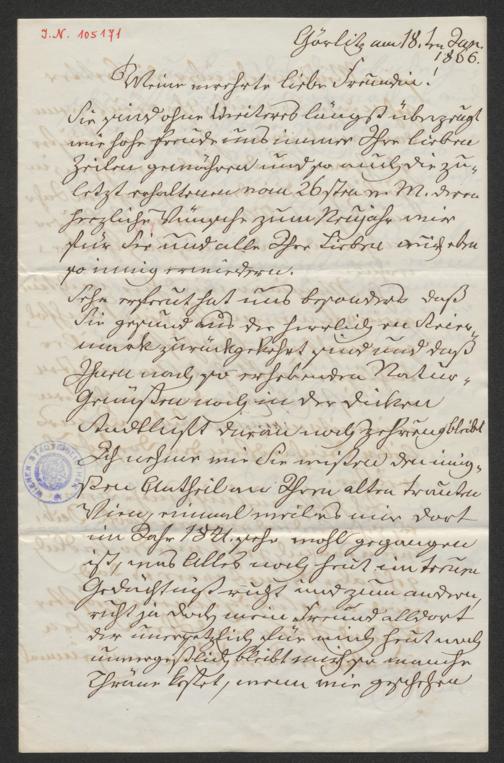 I.N. 105171
Görlitz am 18. ten Jan.
1866.
Meine verehrte liebe Freundin!
Sie sind ohne Weiteres längst überzeugt
wie hohe Freude uns immer Ihre lieben
Zeilen gewähren und so auch die zu-
letzt erhaltenen vom 26sten v. M. deren
herzliche Wünsche zum Neujahr wir
für Sie und alle Ihre Lieben auch eben
so innig erwiedern.
Sehr erfreut hat uns besonders daß
Sie gesund aus der herrlichen Steier-
mark zurückgekehrt sind und daß
Ihnen nach so erhebenden Natur-
Genüßen noch in der dicken
Stadtluft daran noch Zehrung bleibt
Ich nehme wie Sie wißen den innig-
sten Antheil an Ihrem alten trauten
Wien, einmal weil es mir dort
im Jahr sehr wohl gegangen
ist, was Alles noch heut im treuen
Gedächtniß ruht und zum andern
ruht ja doch mein Freund alldort
der unersetzlich für mich heut noch
unvergeßlich bleibt mich so manche
Thräne kostet, wenn wie geschehen